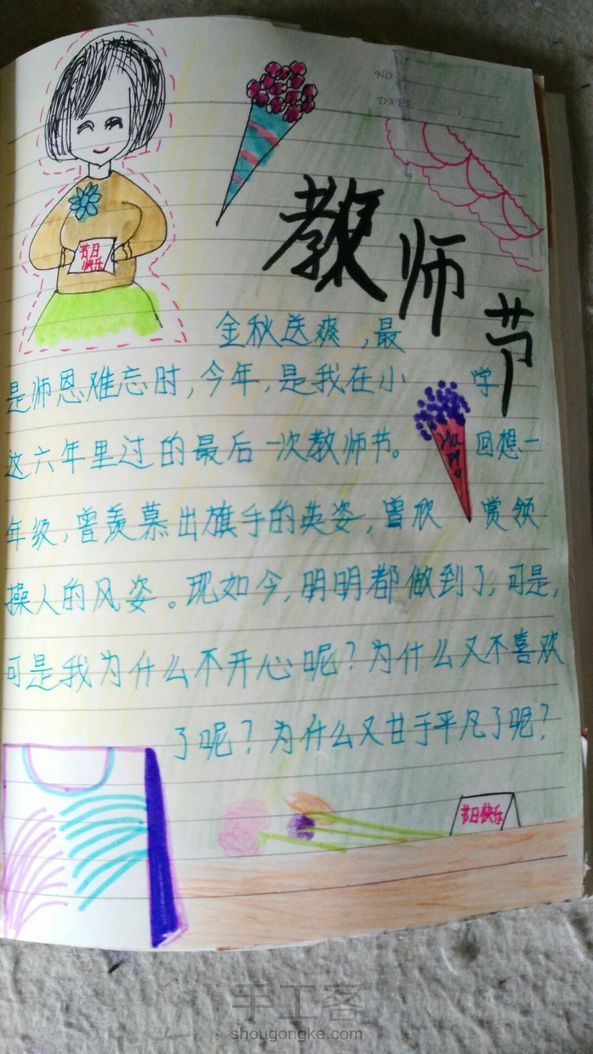 NO.
DATE
教师节
节日
快乐
金秋送爽，最
是师恩难忘时，今年，是我在小学
这六年里过的最后一次教师节。回想一
年级，曾羡慕出旗手的英姿，曾欣赏领
操人的风姿。现如今，明明都做到了，可是，
可是我为什么不开心呢？为什么又不喜欢
了呢？为什么又甘于平凡了呢？
节日快乐
手工客
shougongke.com